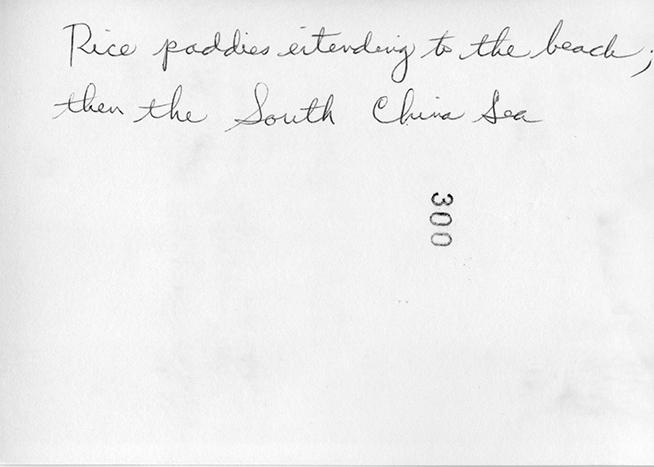 Rice paddies extending to the beach;
then the South China Sea
300